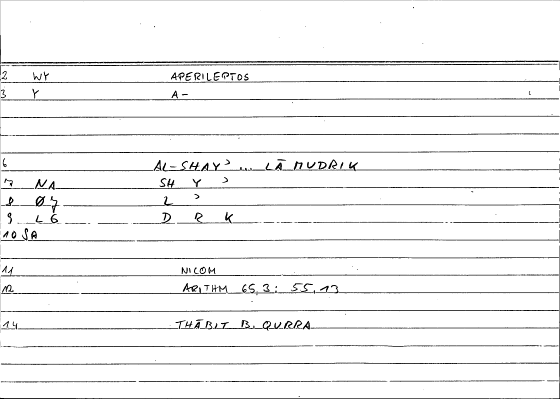 2 WY APERILEPTOS
3 Y A-
6 AL-SHAYʾ ... LĀ MUDRIK
7 NA SH Y ʾ
8 Ø7 L ʾ
9 LG D R K
10 SA
11 NICOM
12 ARITHM 65,3: 55,13
14 THĀBIT B. QURRA